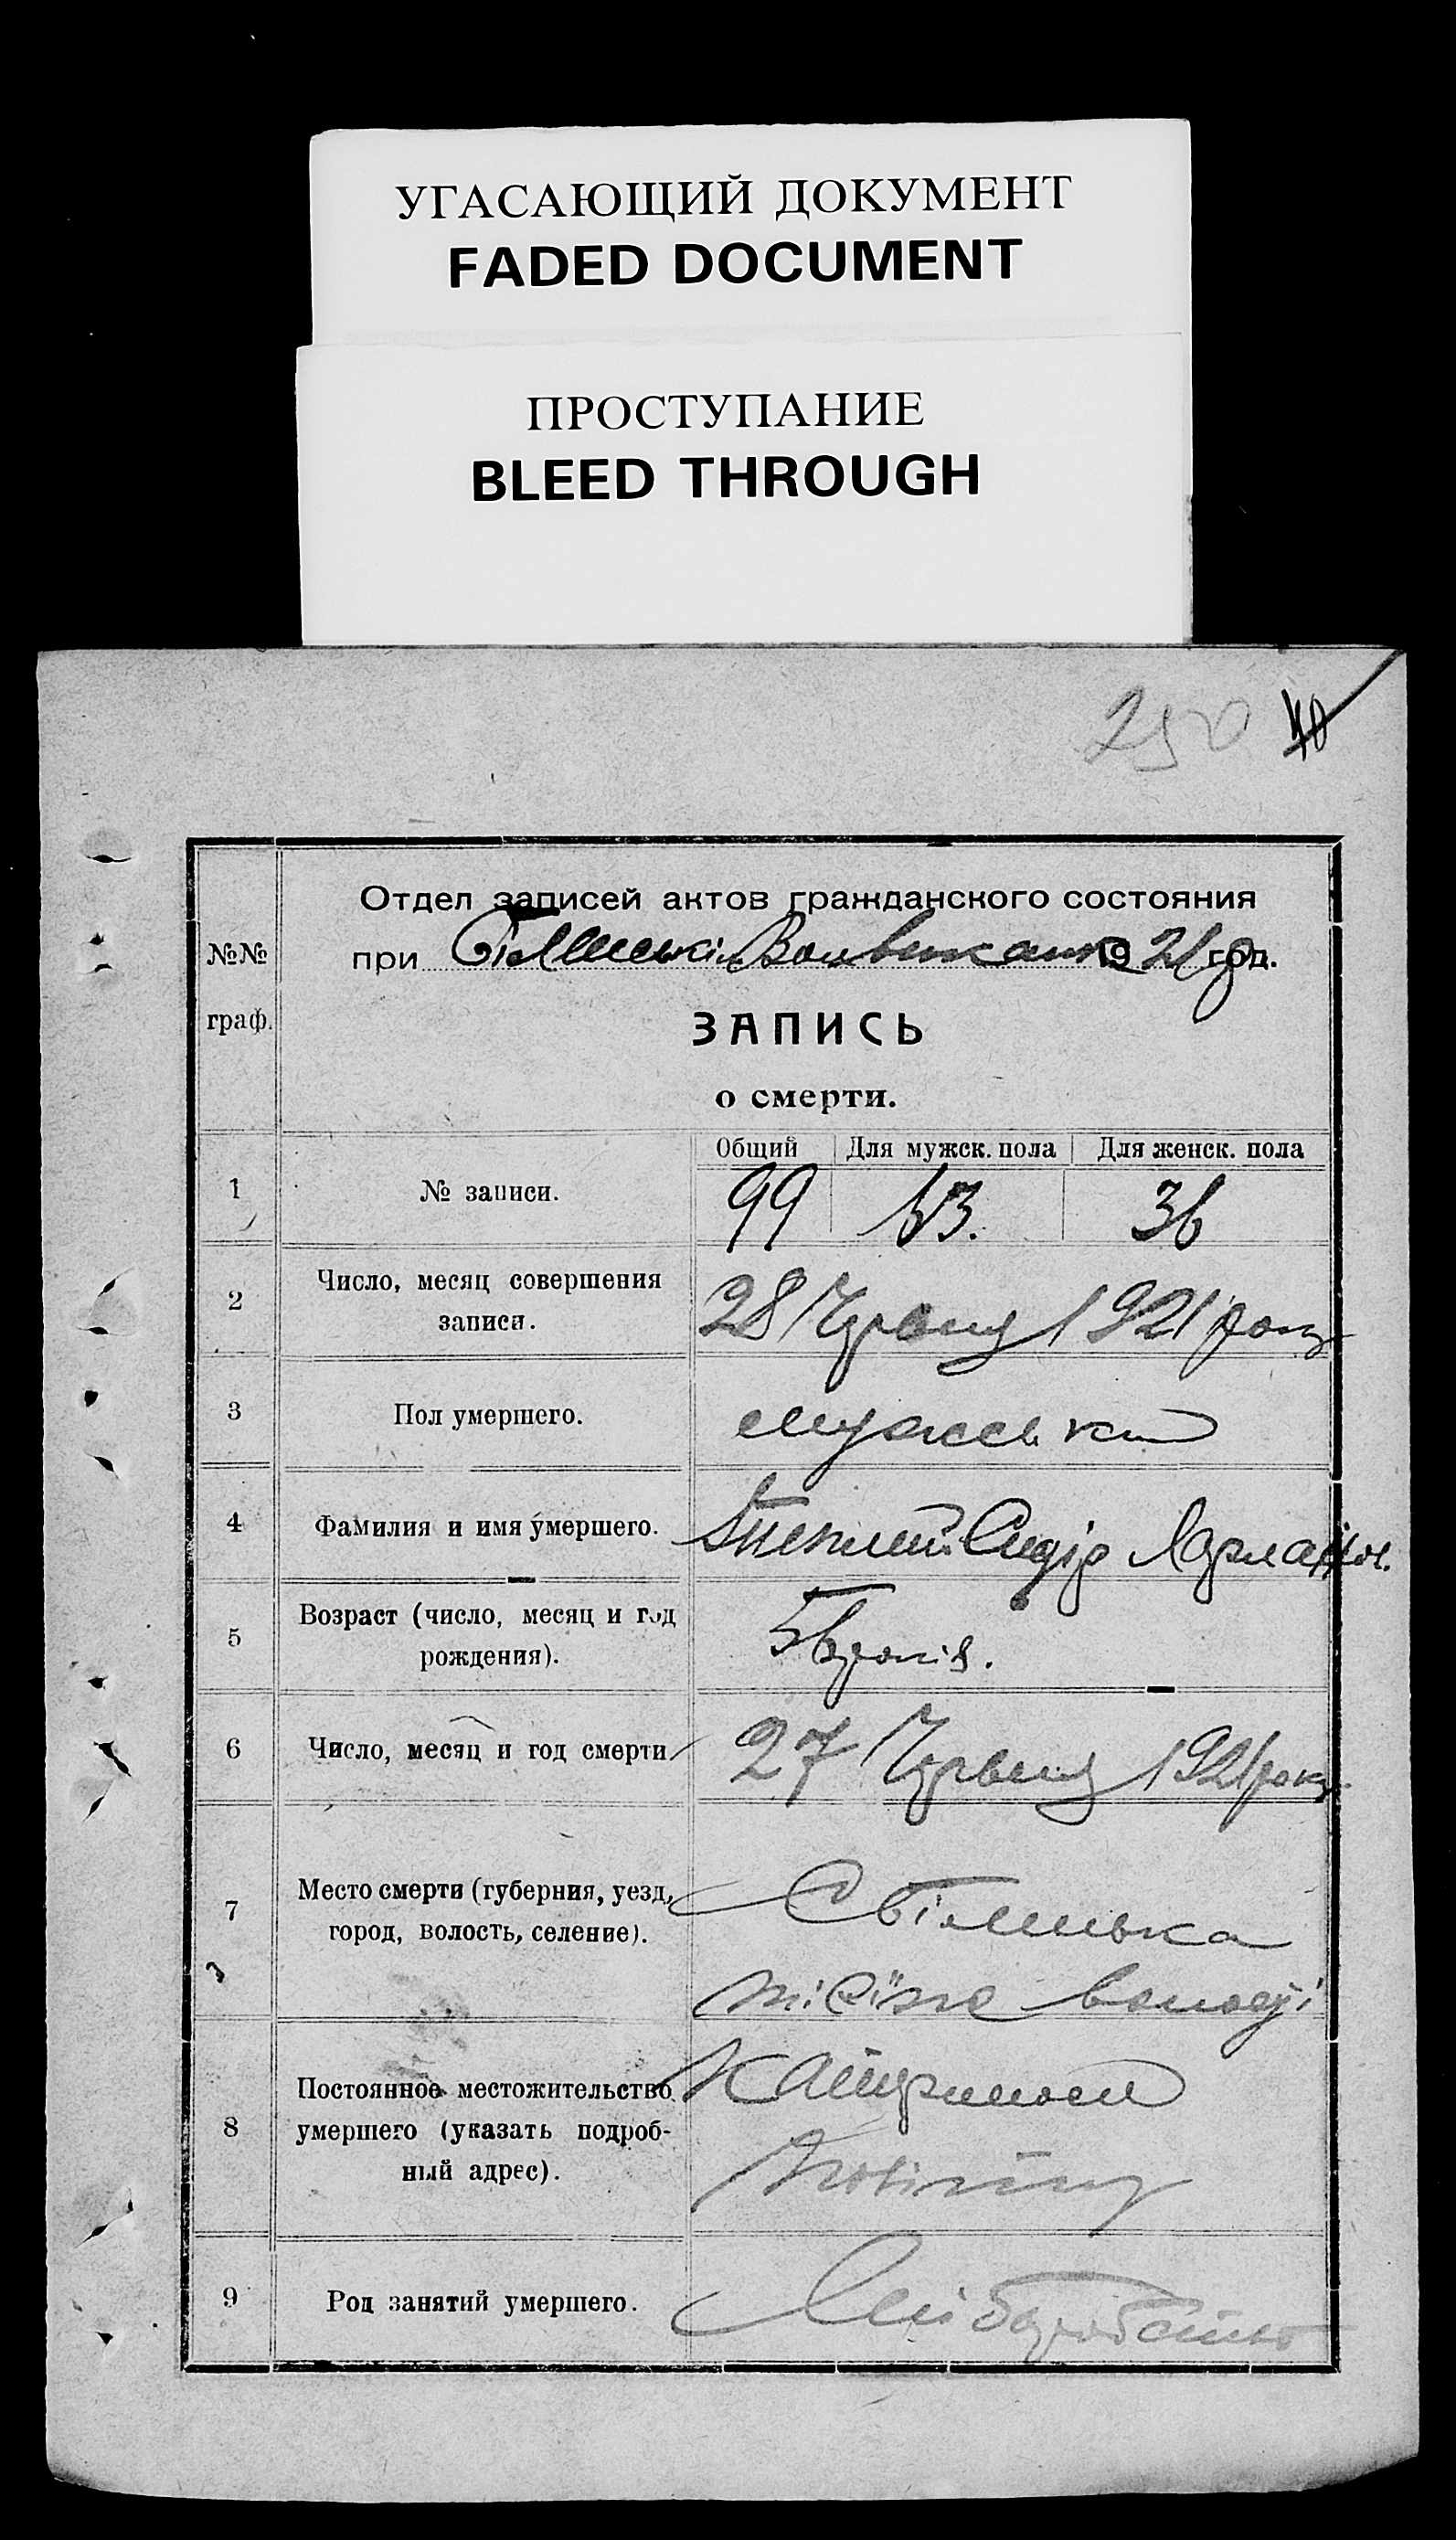 УГАСАЮЩИЙ ДОКУМЕНТ
FADED DOCUMENT
ПРОСТУПАНИЕ
BLEED THROUGH
250 40
Отдел записей актов гражданского состояния
№№ при 1921 р год.
граф.
ЗАПИСЬ
о смерти.
Общий Для мужск. пола Для женск. пола
1 № записи. 99 63. 36
2 Число, месяц совершения
записи. 28 Червня 1921 року
3 Пол умершего. мужськи
4 Фамилия и имя умершего. Сидір
5 Возраст (число, месяц и год
рождения). років.
6 Число, месяц и год смерти 27 Червня 1921 року
7 Место смерти (губерния, уезд,
город, волость, селение).
волості
8 Постоянное местожительство
умершего (указать подроб-
ный адрес).
9 Род занятий умершего.